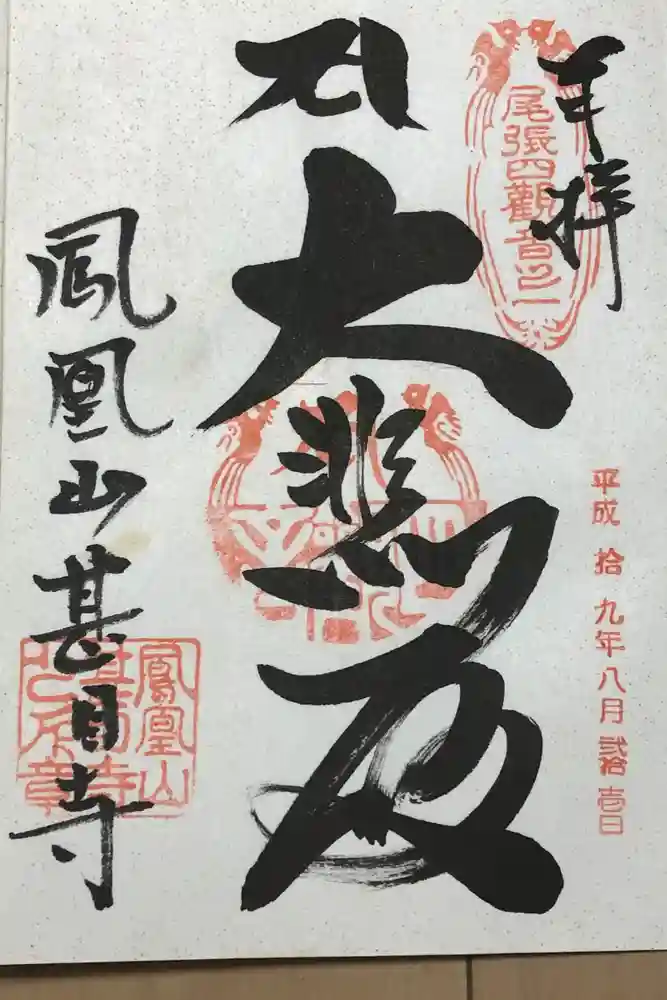 奉拝
尾張四觀音之一
平成 拾九年八月 弐拾壱日
大悲殿
鳳凰山甚目寺
鳳凰山
甚目寺